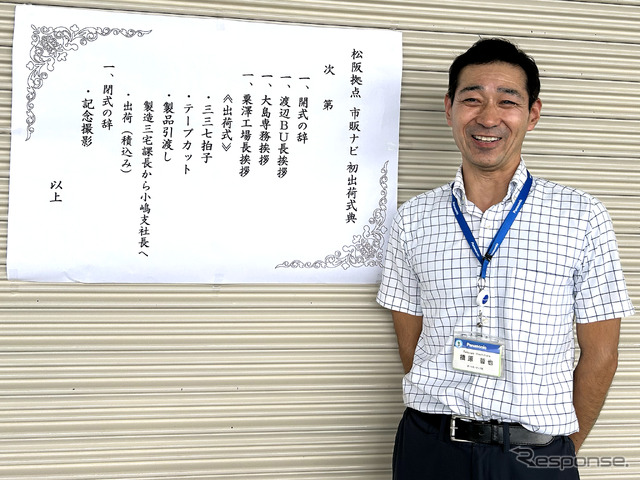 松阪拠点 市販ナビ 初出荷式典
次 第
一、開式の辞
一、渡辺BU長挨拶
一、大島専務挨拶
一、粟澤工場長挨拶
《出荷式》
・三三七拍子
・テープカット
・製品引渡し
製造三宅課長から小嶋支社長へ
・出荷（積込み）
一、閉式の辞
・記念撮影
以上
Panasonic
Response.